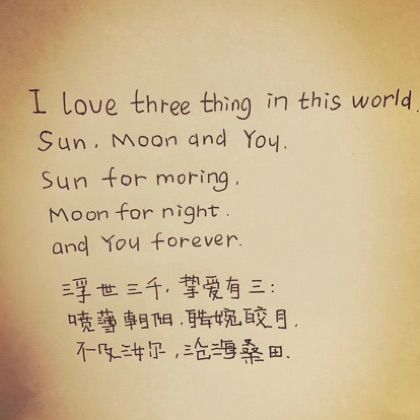 I love three thing in this world.
Sun. Moon and You.
Sun for moring.
Moon for night.
and You forever.
浮世三千,挚爱有三:
喷薄朝阳.婉皎月.
不及汝尔,沧海桑田.